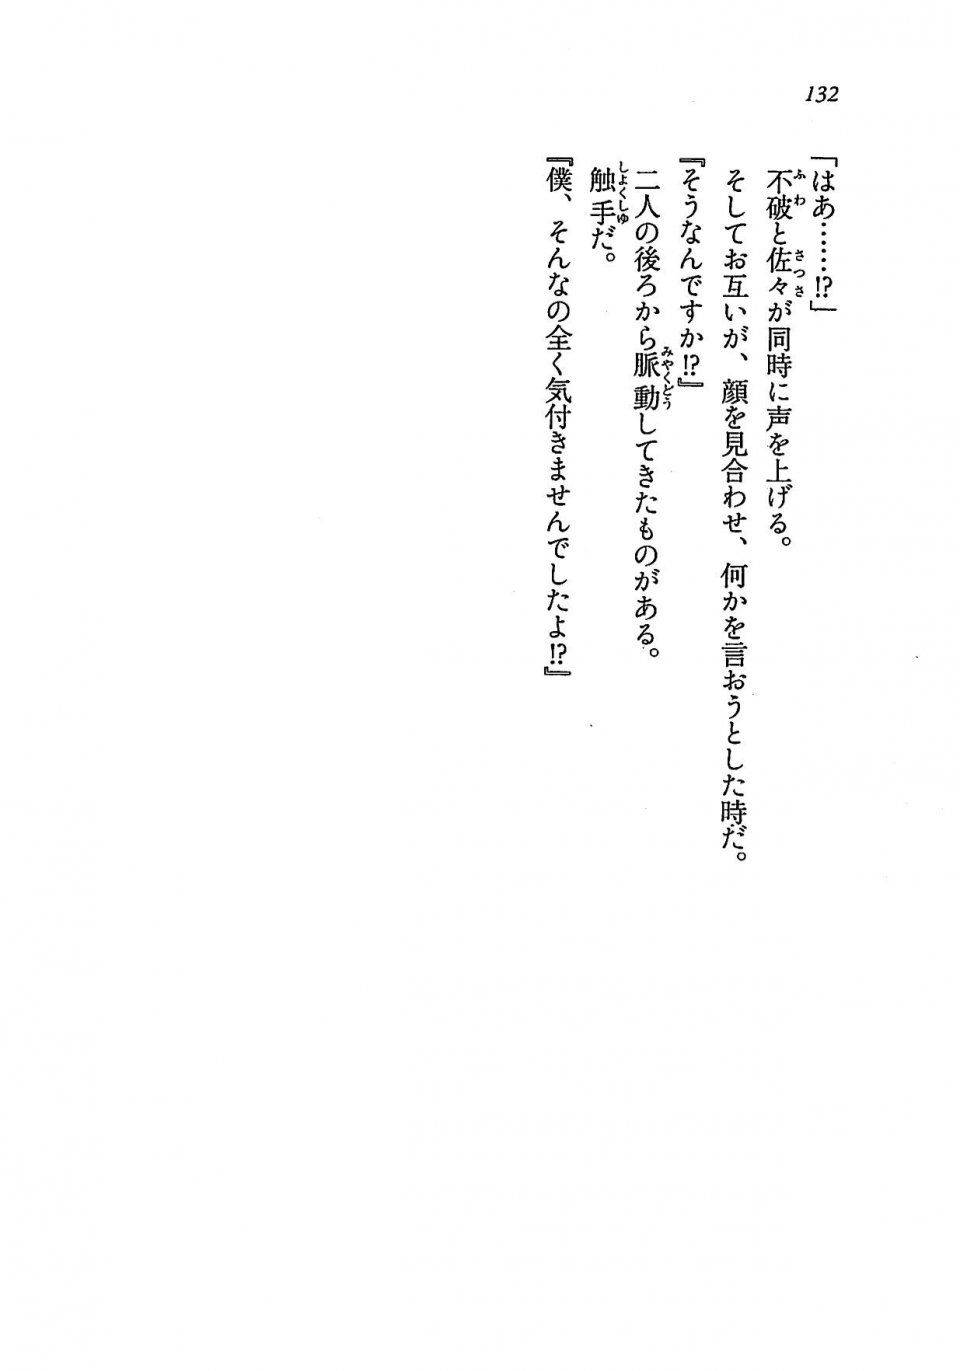 132
「はあ……!?」
不破と佐々が同時に声を上げる。
そしてお互いが、顔を見合わせ、何かを言おうとした時だ。
『そうなんですか!?』
二人の後ろから脈動してきたものがある。
触手だ。
『僕、そんなの全く気付きませんでしたよ!?』